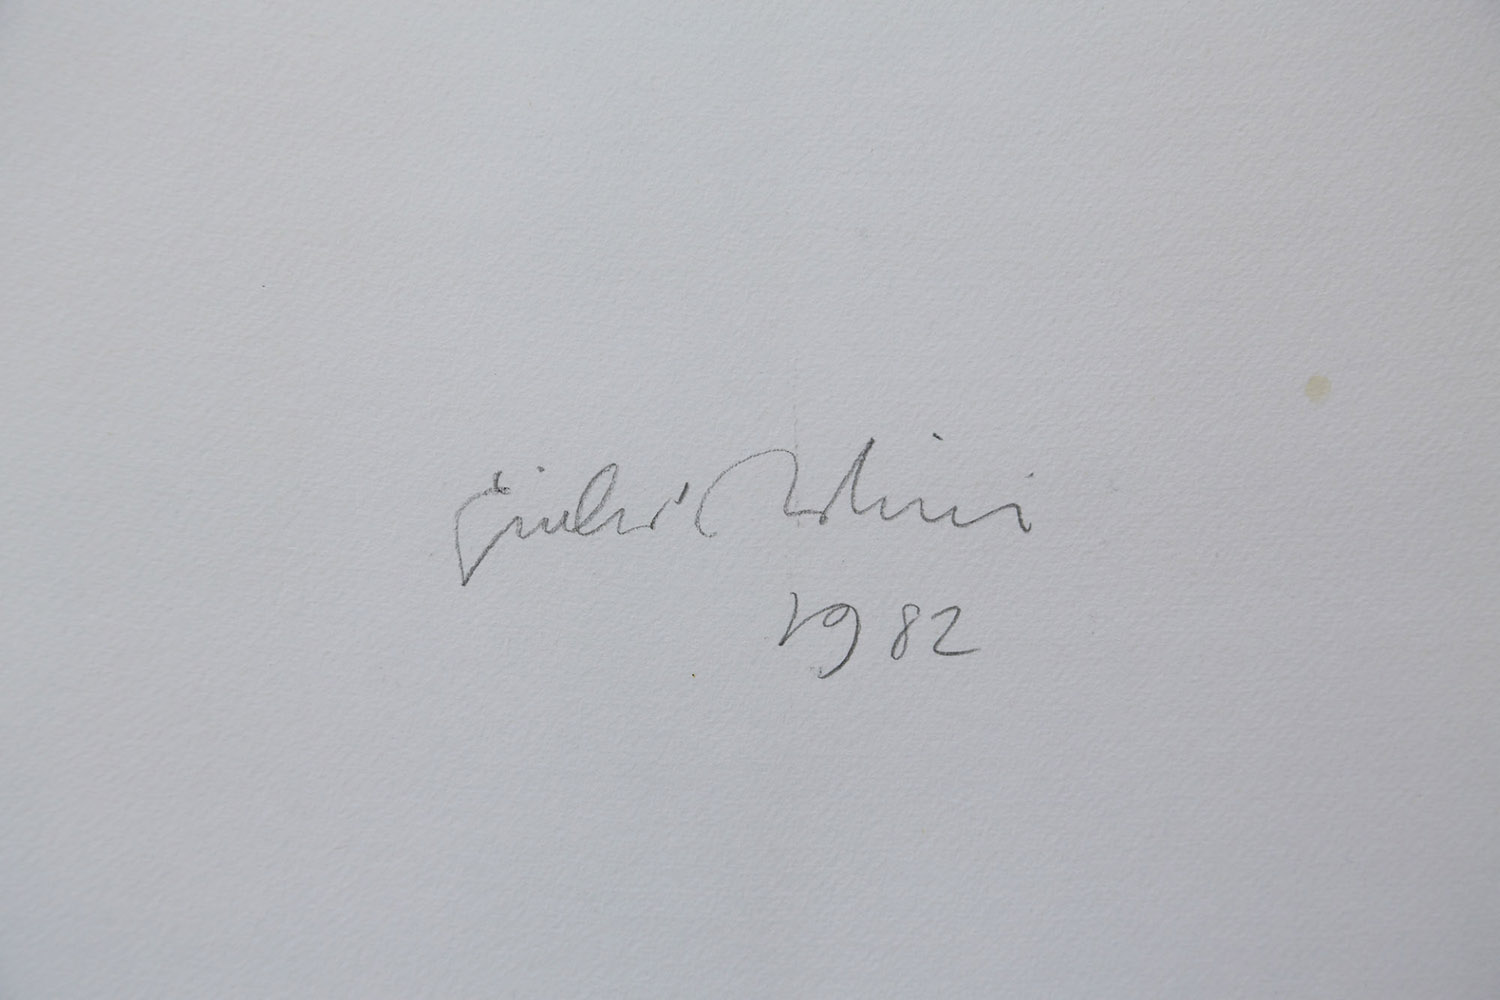 Giulio Paolini
1982